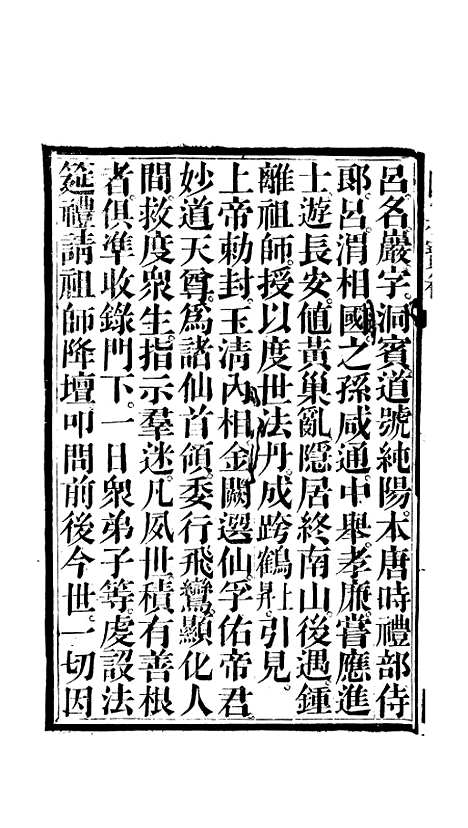 呂。名巖。字。洞賓。道號純陽。本唐時禮部侍
郎。呂渭相國之孫。咸通中。舉孝廉。嘗應進
士。遊長安。值黃巢亂。隱居終南山。後遇。鍾
離祖師。授以度世法。丹成。跨鶴昇。引見。
上帝勅封。玉清內相。金闕選仙。孚佑帝君。
妙道天尊。為諸仙首領。委行飛鸞。顯化人
間。救度衆生。指示羣迷。凡夙世。積有善根
者。俱準收錄門下。一日衆弟子等。虔設法
筵。禮請祖師降壇。叩問前後今世。一切因